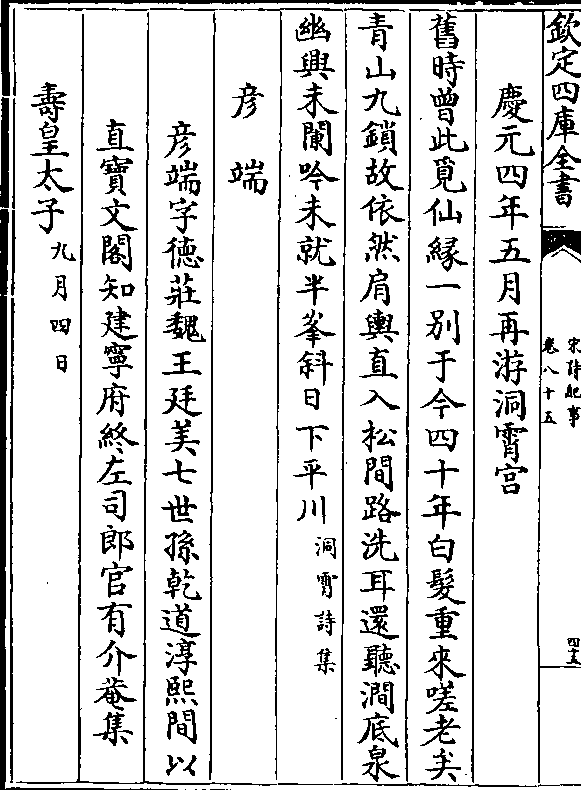 欽定四庫全書
宋詩紀事
卷八十五
慶元四年五月再游洞霄宫
舊時曾此覓仙緣一别于今四十年白髮重來嗟老矣
青山九鎖故依然肩輿直入松間路洗耳還聽澗底泉
幽興未闌吟未就半峯斜日下平川洞霄詩集
彦端
彦端字德莊魏王廷美七世孫乾道淳熙間以
直寶文閣知建寧府終左司郎官有介菴集
壽皇太子九月四日